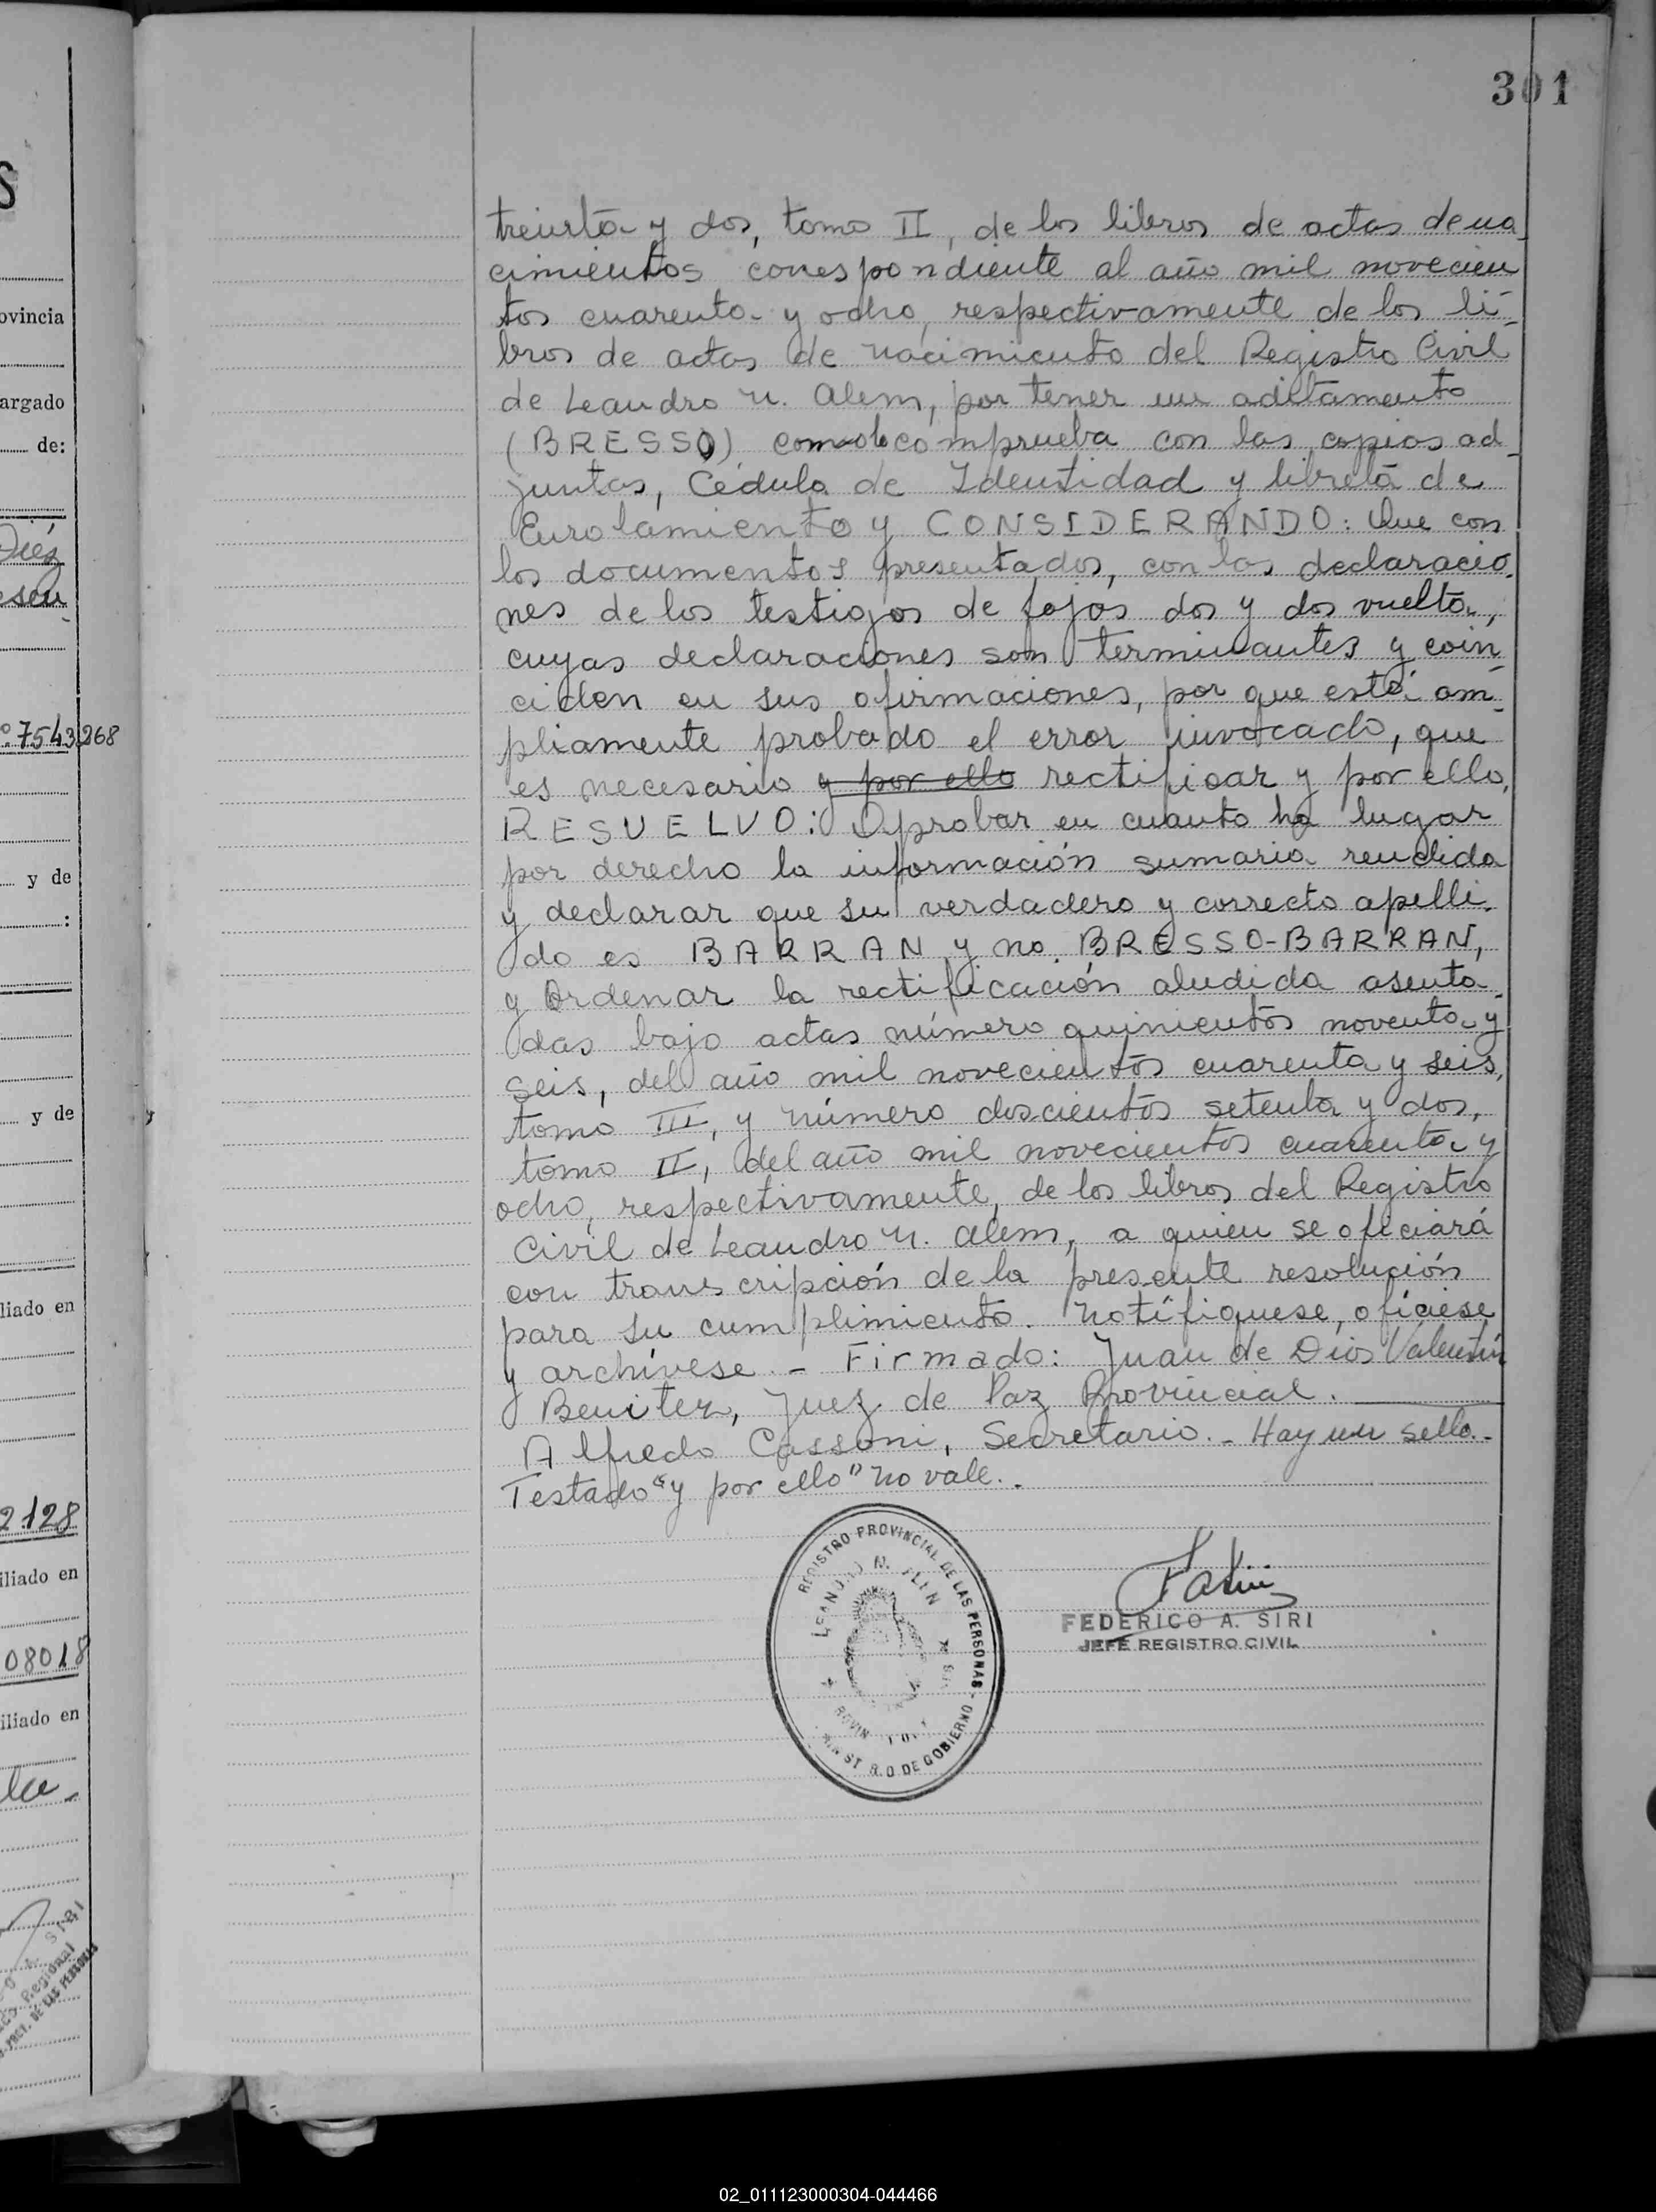 301
treinta y dos, tomo II, de los libros de actas de na
cimientos correspondiente al año mil novecien
tos cuarenta y ocho, respectivamente de los li-
bros de actas de nacimiento del Registro Civil
de Leandro N. Alem, por tener un aditamento
(BRESSO) como lo comprueba con las copias ad-
juntas, Cédula de Identidad y libreta de
Enrolamiento y CONSIDERANDO: Que con
los documentos presentados, con las declaracio-
nes de los testigos de fojas dos y dos vuelta,
cuyas declaraciones son terminantes y coin-
ciden en sus afirmaciones, por que está am-
pliamente probado el error invocado, que
es necesario y por ello rectificar y por ello,
RESUELVO: Aprobar en cuanto ha lugar
por derecho la información sumaria rendida
y declarar que su verdadero y correcto apelli-
do es BARRAN y no BRESSO-BARRAN,
y Ordenar la rectificación aludida asenta-
das bajo actas número quinientos noventa y
seis, del año mil novecientos cuarenta y seis,
tomo III, y número doscientos setenta y dos,
tomo II, del año mil novecientos cuarenta y
ocho, respectivamente, de los libros del Registro
Civil de Leandro N. Alem, a quien se oficiará
con transcripción de la presente resolución
para su cumplimiento. Notifíquese, ofíciese
y archívese.- Firmado: Juan de Dios Valentín
Benitez, Juez de Paz Provincial.
Alfredo Cassoni, Secretario.- Hay un sello.-
Testado "y por ello" no vale.-
REGISTRO PROVINCIAL DE LAS PERSONAS
LEANDRO N. ALEM
DE GOBIERNO
FEDERICO A. SIRI
JEFE REGISTRO CIVIL
S
ovincia
argado
de:
Diéz
7543268
y de
:
y de
liado en
2.128
iliado en
08018
iliado en
SIRI
Regional
DE LAS PERSONAS
02_011123000304-044466